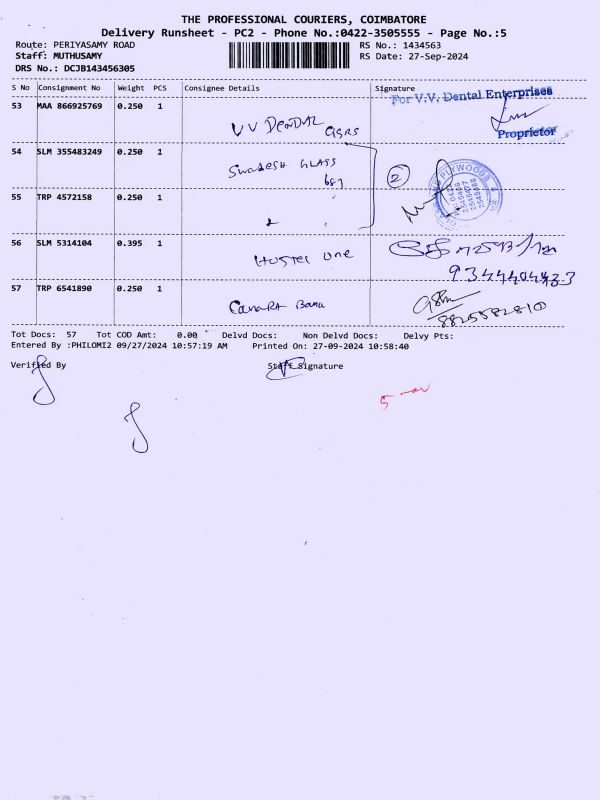 THE PROFESSIONAL COURIERS, COIMBATORE
Delivery Runsheet - PC2 - Phone No.:0422-3505555 - Page No.:5
Route: PERIYASAMY ROAD RS No.: 1434563
Staff: MUTHUSAMY RS Date: 27-Sep-2024
DRS No.: DCJB143456305
S No Consignment No Weight PCS Consignee Details Signature
For V.V. Dental Enterprises
53 MAA 866925769 0.250 1
VV Dental
Proprietor
54 SLM 355483249 0.250 1
Swadesh GLASS
2
PLYWOODS
55 TRP 4572158 0.250 1
56 SLM 5314104 0.395 1
Hostel One
57 TRP 6541890 0.250 1
Canara Bank
Tot Docs: 57 Tot COD Amt: 0.00 Delvd Docs: Non Delvd Docs: Delvy Pts:
Entered By :PHILOMI2 09/27/2024 10:57:19 AM Printed On: 27-09-2024 10:58:40
Verified By Staff Signature